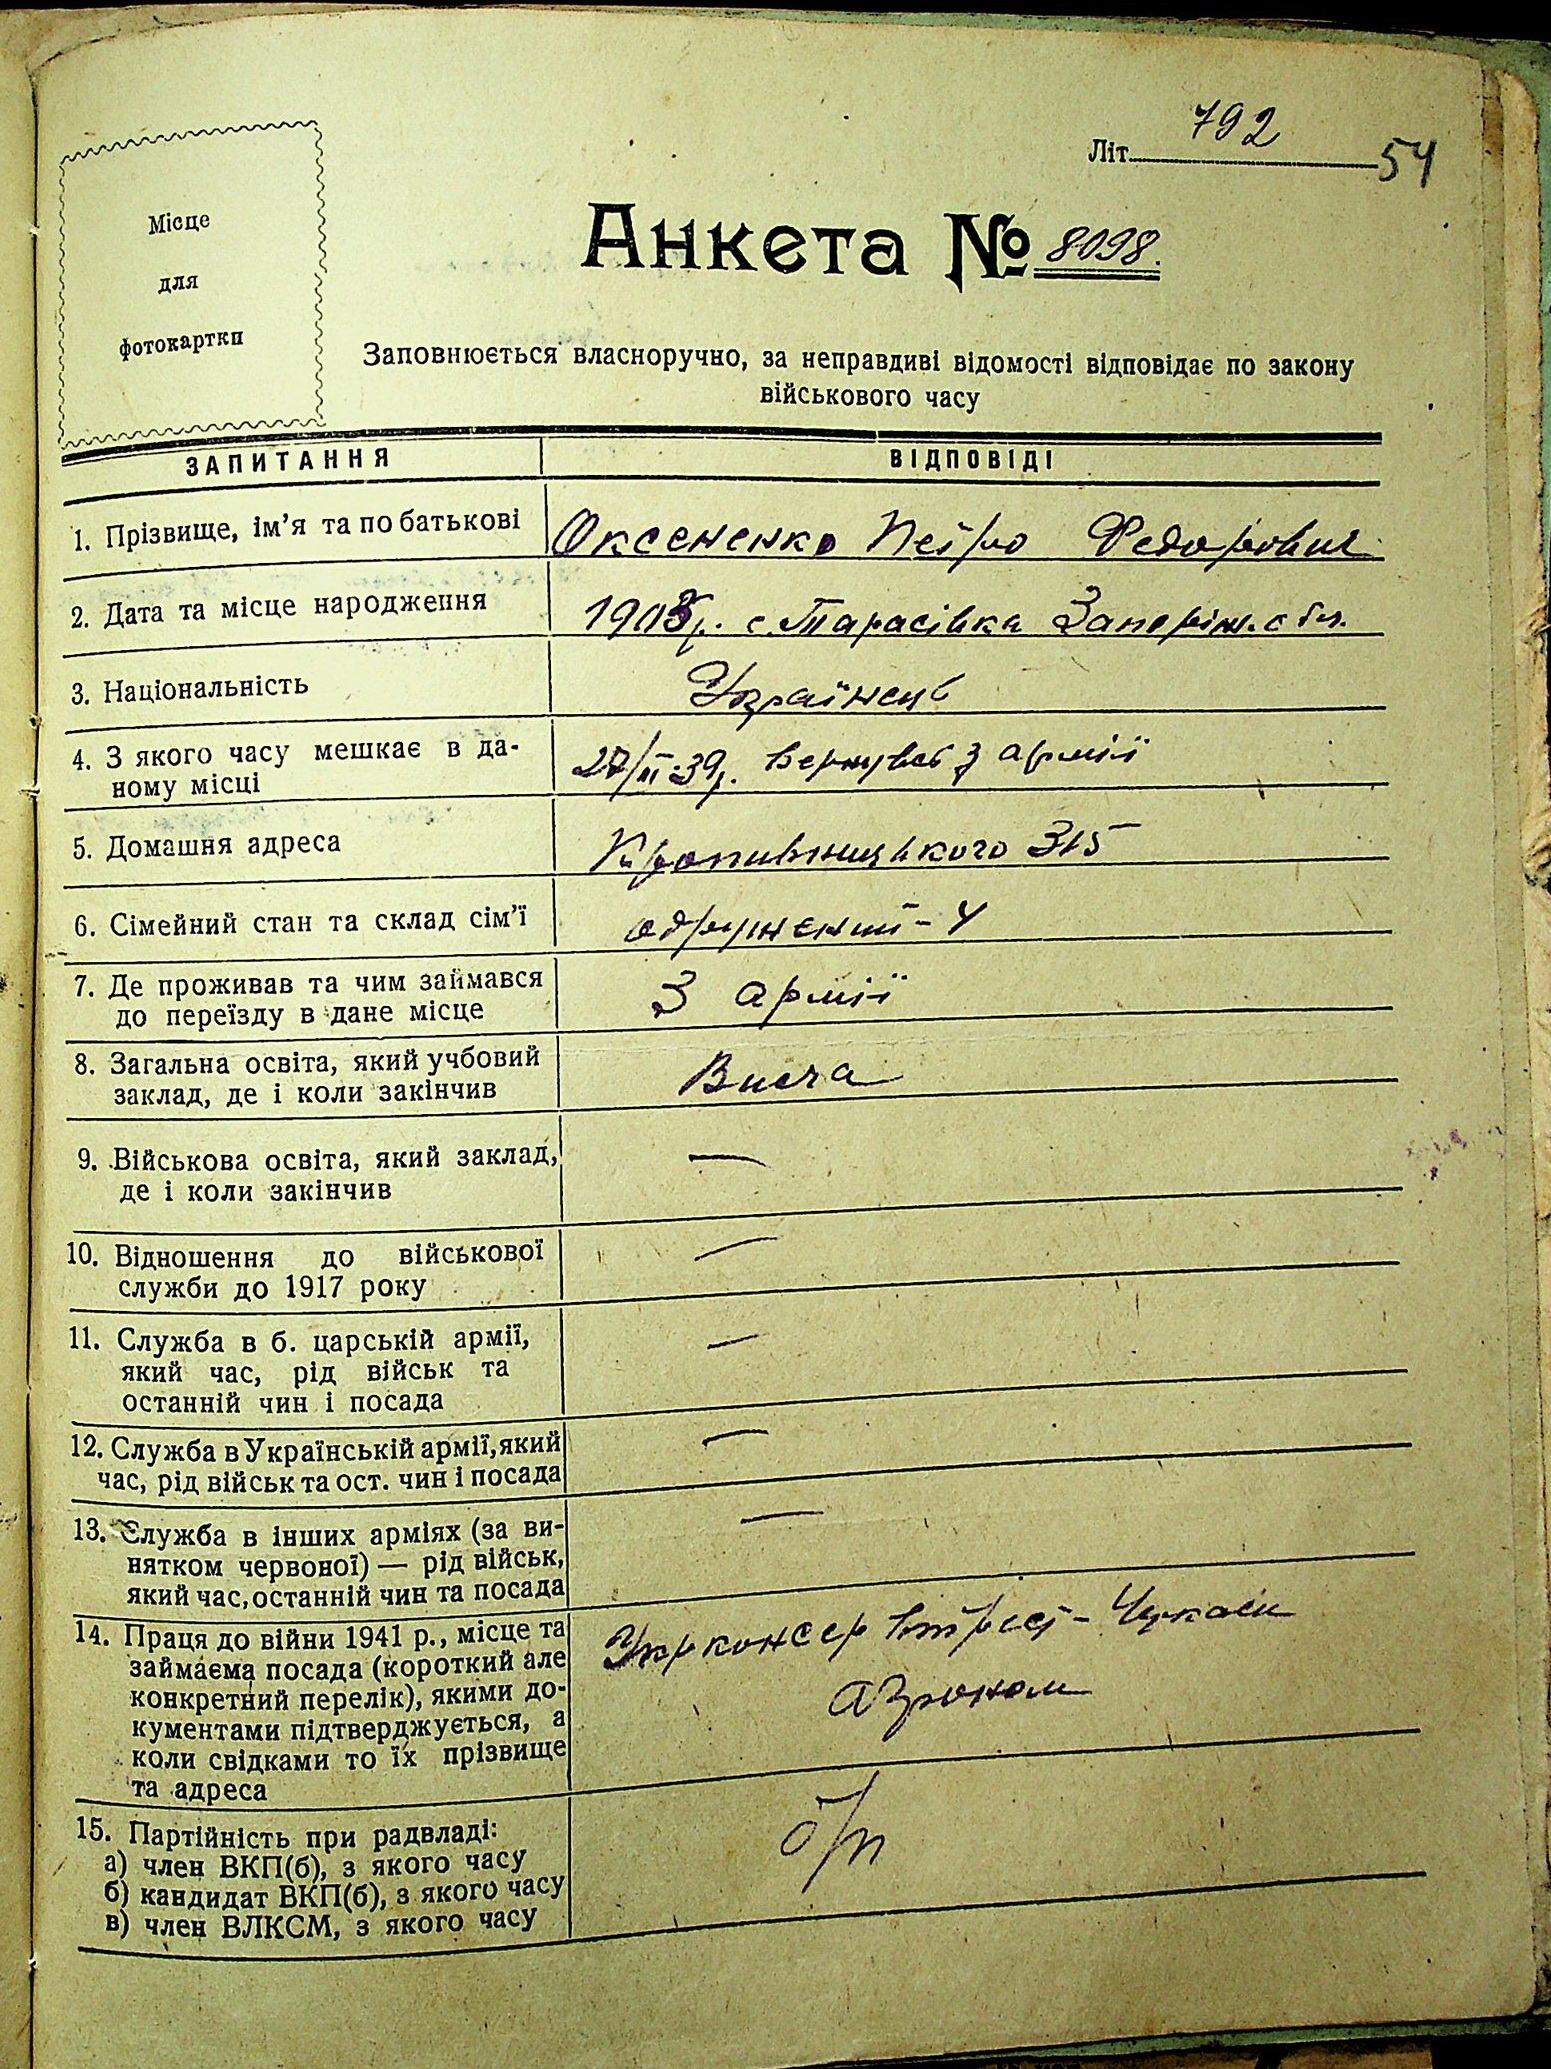 792
Літ. 54
Місце
для
фотокартки
Анкета № 8098.
Заповнюється власноручно, за неправдиві відомості відповідає по закону
військового часу
ЗАПИТАННЯ ВІДПОВІДІ
1. Прізвище, ім'я та по батькові Оксененко Петро Федорович
2. Дата та місце народження р. с. Тарасівка Запоріж. обл.
3. Національність Українець
4. З якого часу мешкає в да-
ному місці 39р. Вернувсь з армії
5. Домашня адреса Кропивницького 315
6. Сімейний стан та склад сім'ї одружений - 4
7. Де проживав та чим займався
до переїзду в дане місце З армії
8. Загальна освіта, який учбовий
заклад, де і коли закінчив Висча
9. Військова освіта, який заклад,
де і коли закінчив —
10. Відношення до військової
служби до 1917 року —
11. Служба в б. царській армії,
який час, рід військ та
останній чин і посада —
12. Служба в Українській армії, який
час, рід військ та ост. чин і посада —
13. Служба в інших арміях (за ви-
нятком червоної) — рід військ,
який час, останній чин та посада —
14. Праця до війни 1941 р., місце та Укрконсервтрест - Черкаси
займаєма посада (короткий але
конкретний перелік), якими до- агроном
кументами підтверджується, а
коли свідками то їх прізвище
та адреса
15. Партійність при радвладі:
а) член ВКП(б), з якого часу б/п
б) кандидат ВКП(б), з якого часу
в) член ВЛКСМ, з якого часу